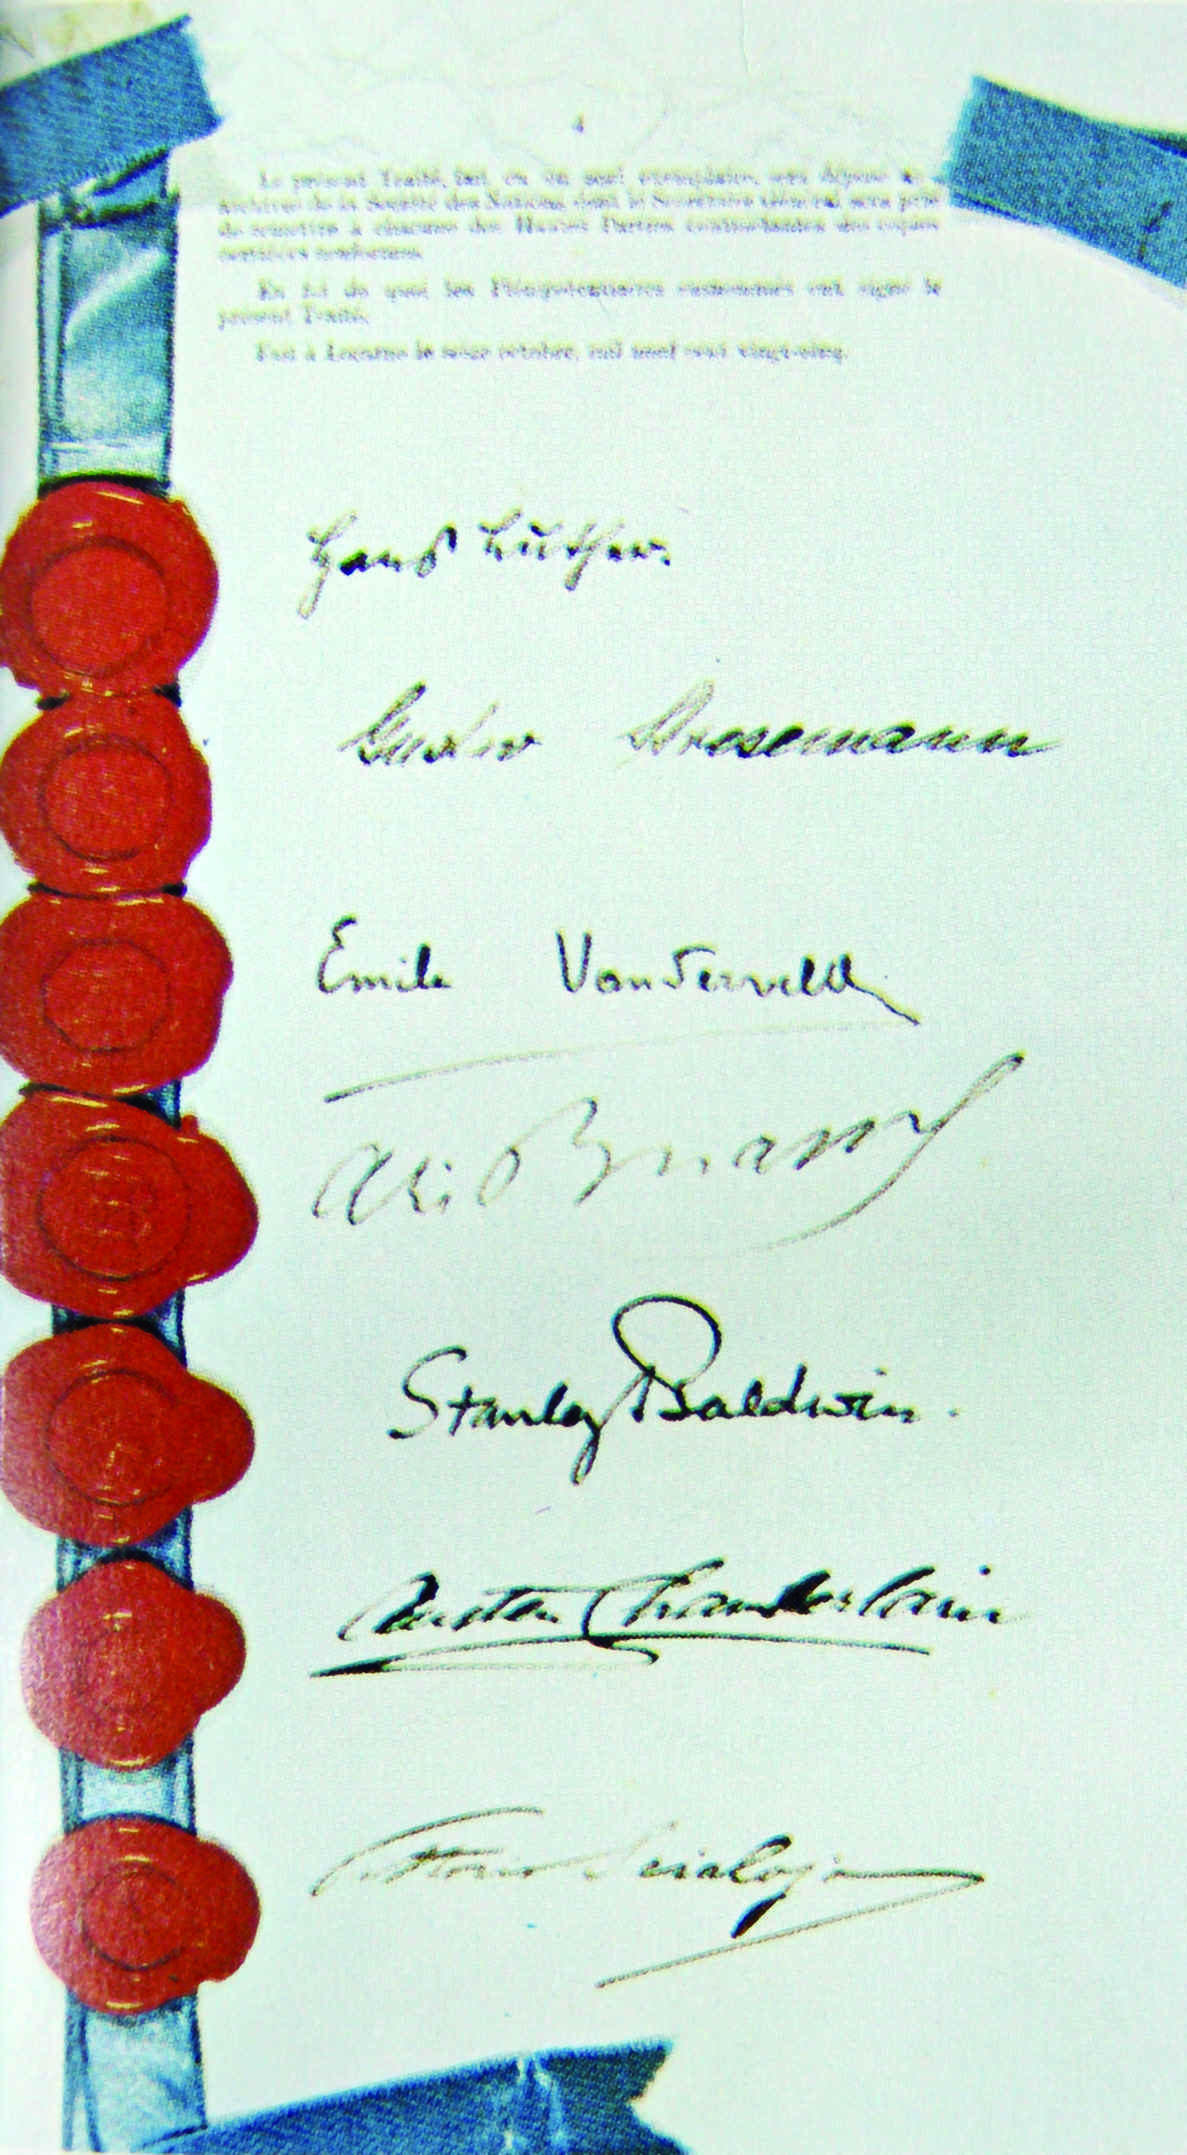 4
Le présent Traité, fait en un seul exemplaire, sera déposé aux
archives de la Société des Nations dont le Secrétaire Général sera prié
de remettre à chacune des Hautes Parties contractantes des copies
certifiées conformes.
En foi de quoi les Plénipotentiaires susnommés ont signé le
présent Traité.
Fait à Locarno le seize octobre, mil neuf cent vingt-cinq.
Hans Luther.
Gustav Stresemann
Emile Vandervelde
Ari Briand
Stanley Baldwin.
Austen Chamberlain
Vittorio Scialoja